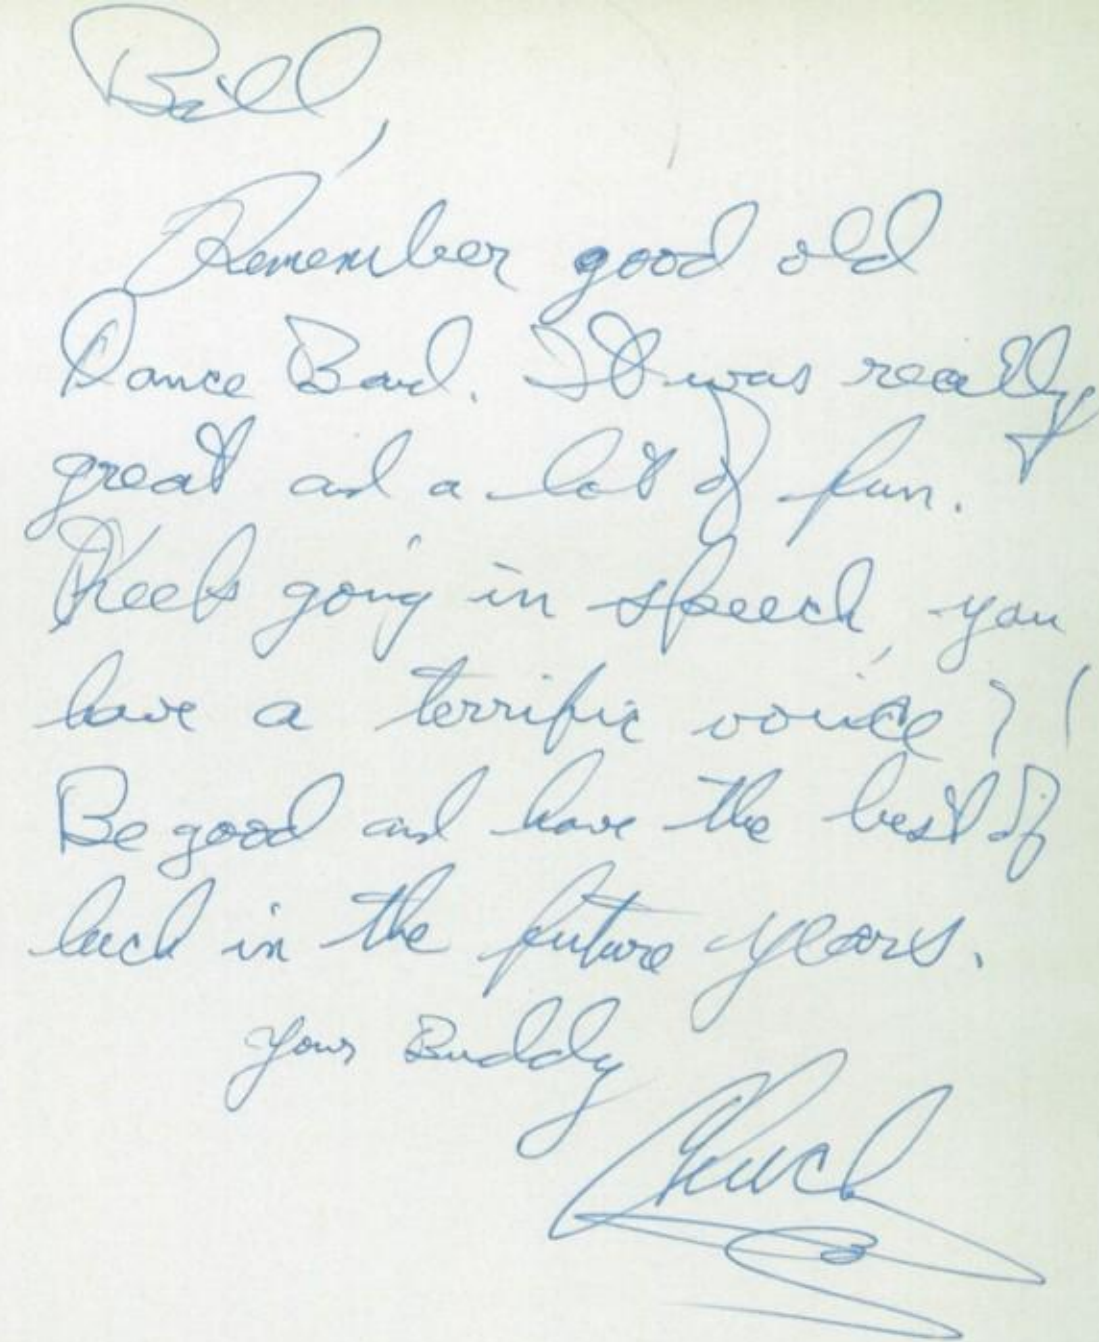 Bill,
Remember good old
Dance Band. It was really
great and a lot of fun.
Keep going in speech, you
have a terrific voice?!
Be good and have the best of
luck in the future years.
Your Buddy
Chuck